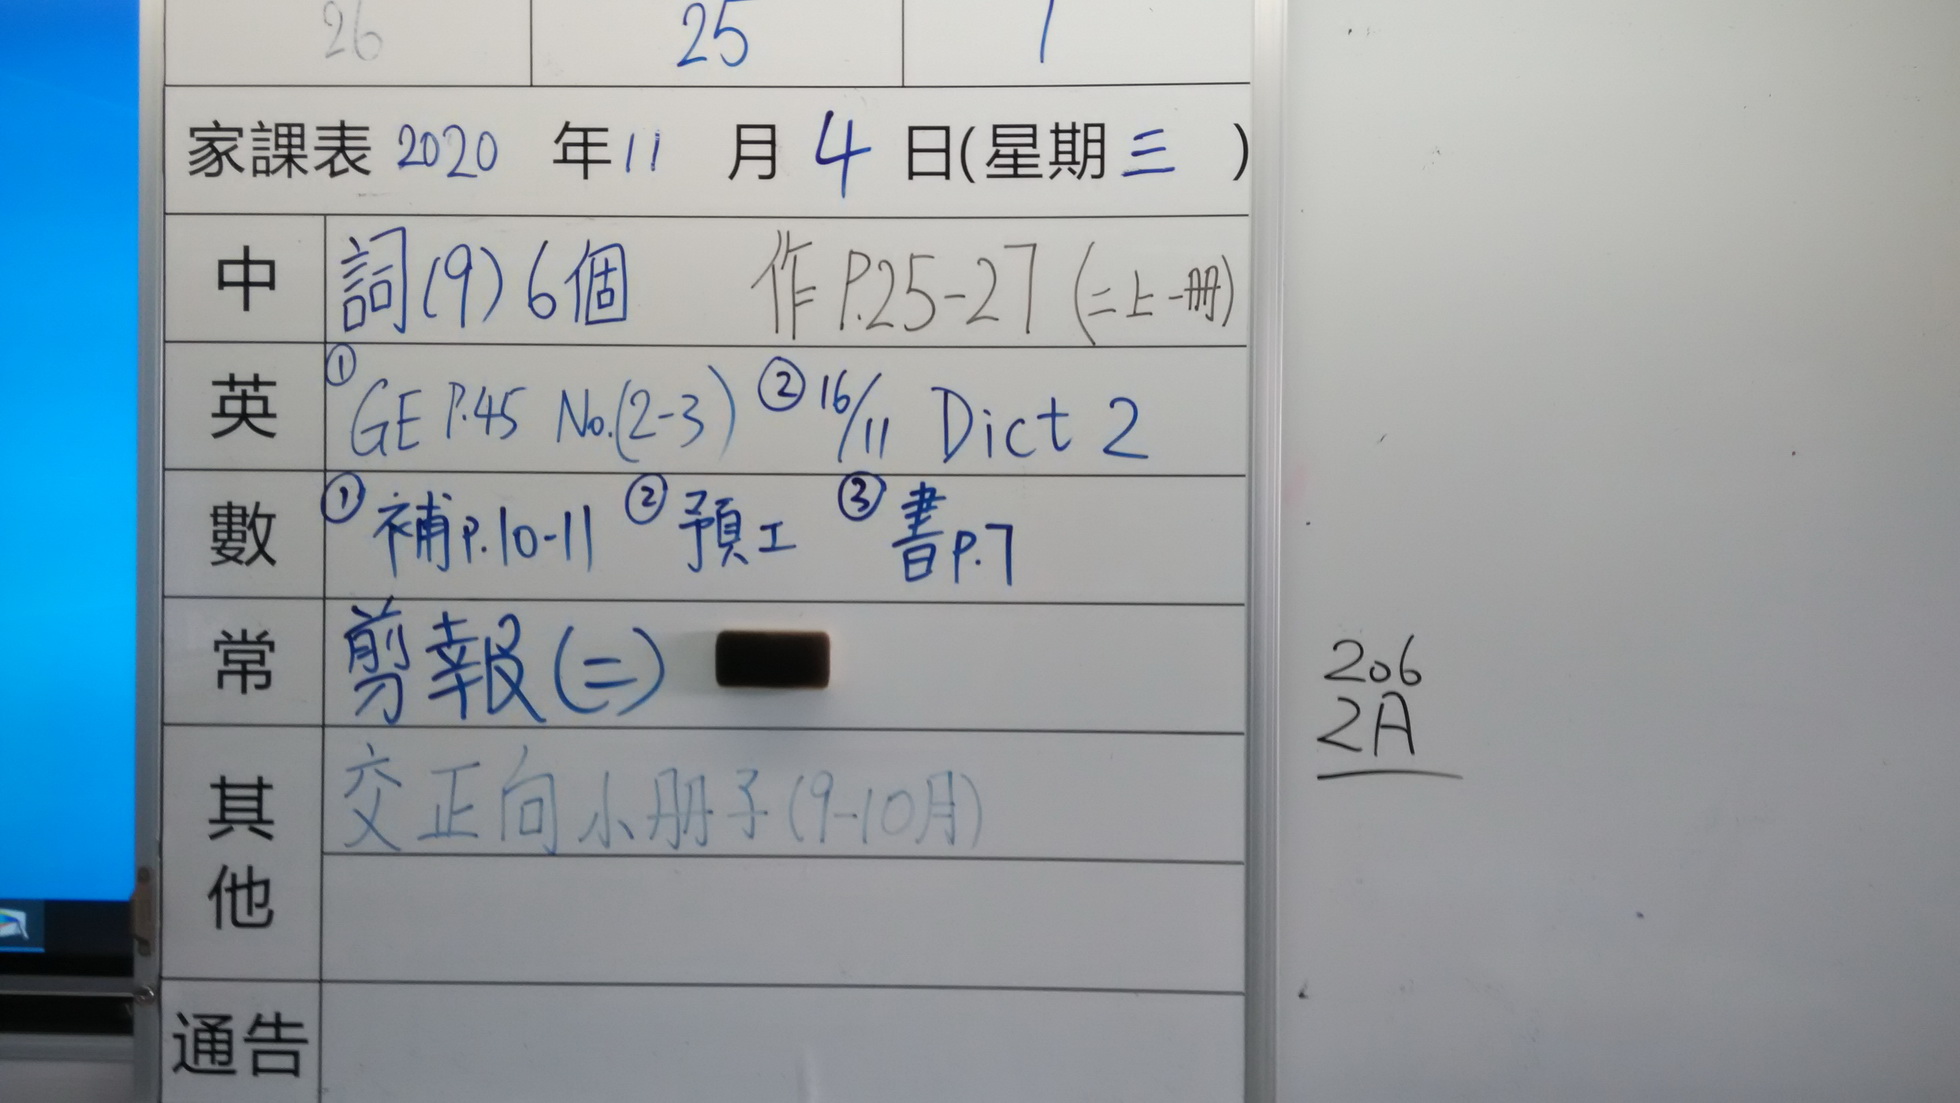 26 25 1
家課表 2020 年 11 月 4 日(星期三 )
中 詞(9)6個 作P.25-27(二上一冊)
英 ①GE P.45 No.(2-3) ②16/11 Dict 2
數 ①補P.10-11 ②預工 ③書P.7
常 剪報(二)
其他 交正向小冊子(9-10月)
通告
206
2A